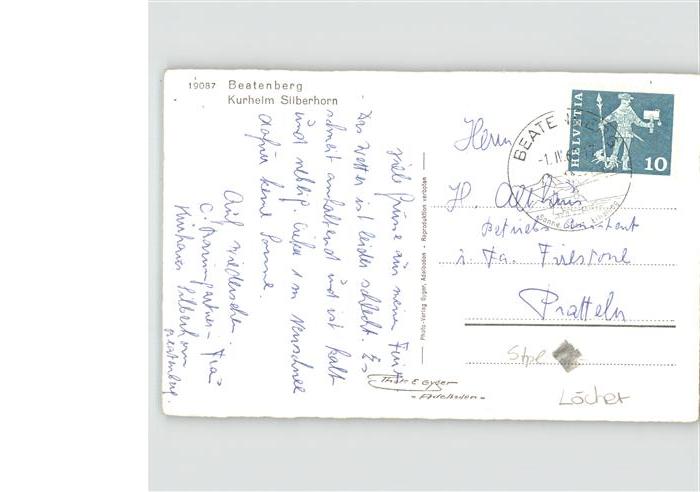 19087 Beatenberg
Kurheim Silberhorn
Viele Grüsse aus meinen
Das Wetter ist leider schlecht. Es
schneit anhaltend und ist kalt
und neblig. Neuschnee
dafür keine Sonne.
Auf Wiedersehen.
C. Baumgartner - Frau
Kurhaus Silberhorn
Beatenberg.
Photo-Verlag Gyger, Adelboden - Reproduktion verboten
Thör E Gyger
- Adelboden -
HELVETIA
10
BEATE
-1. IV.
Herrn
H. Althaus
Betriebsassistent
i. Fa. Firestone
Pratteln
Stpl
Löcher